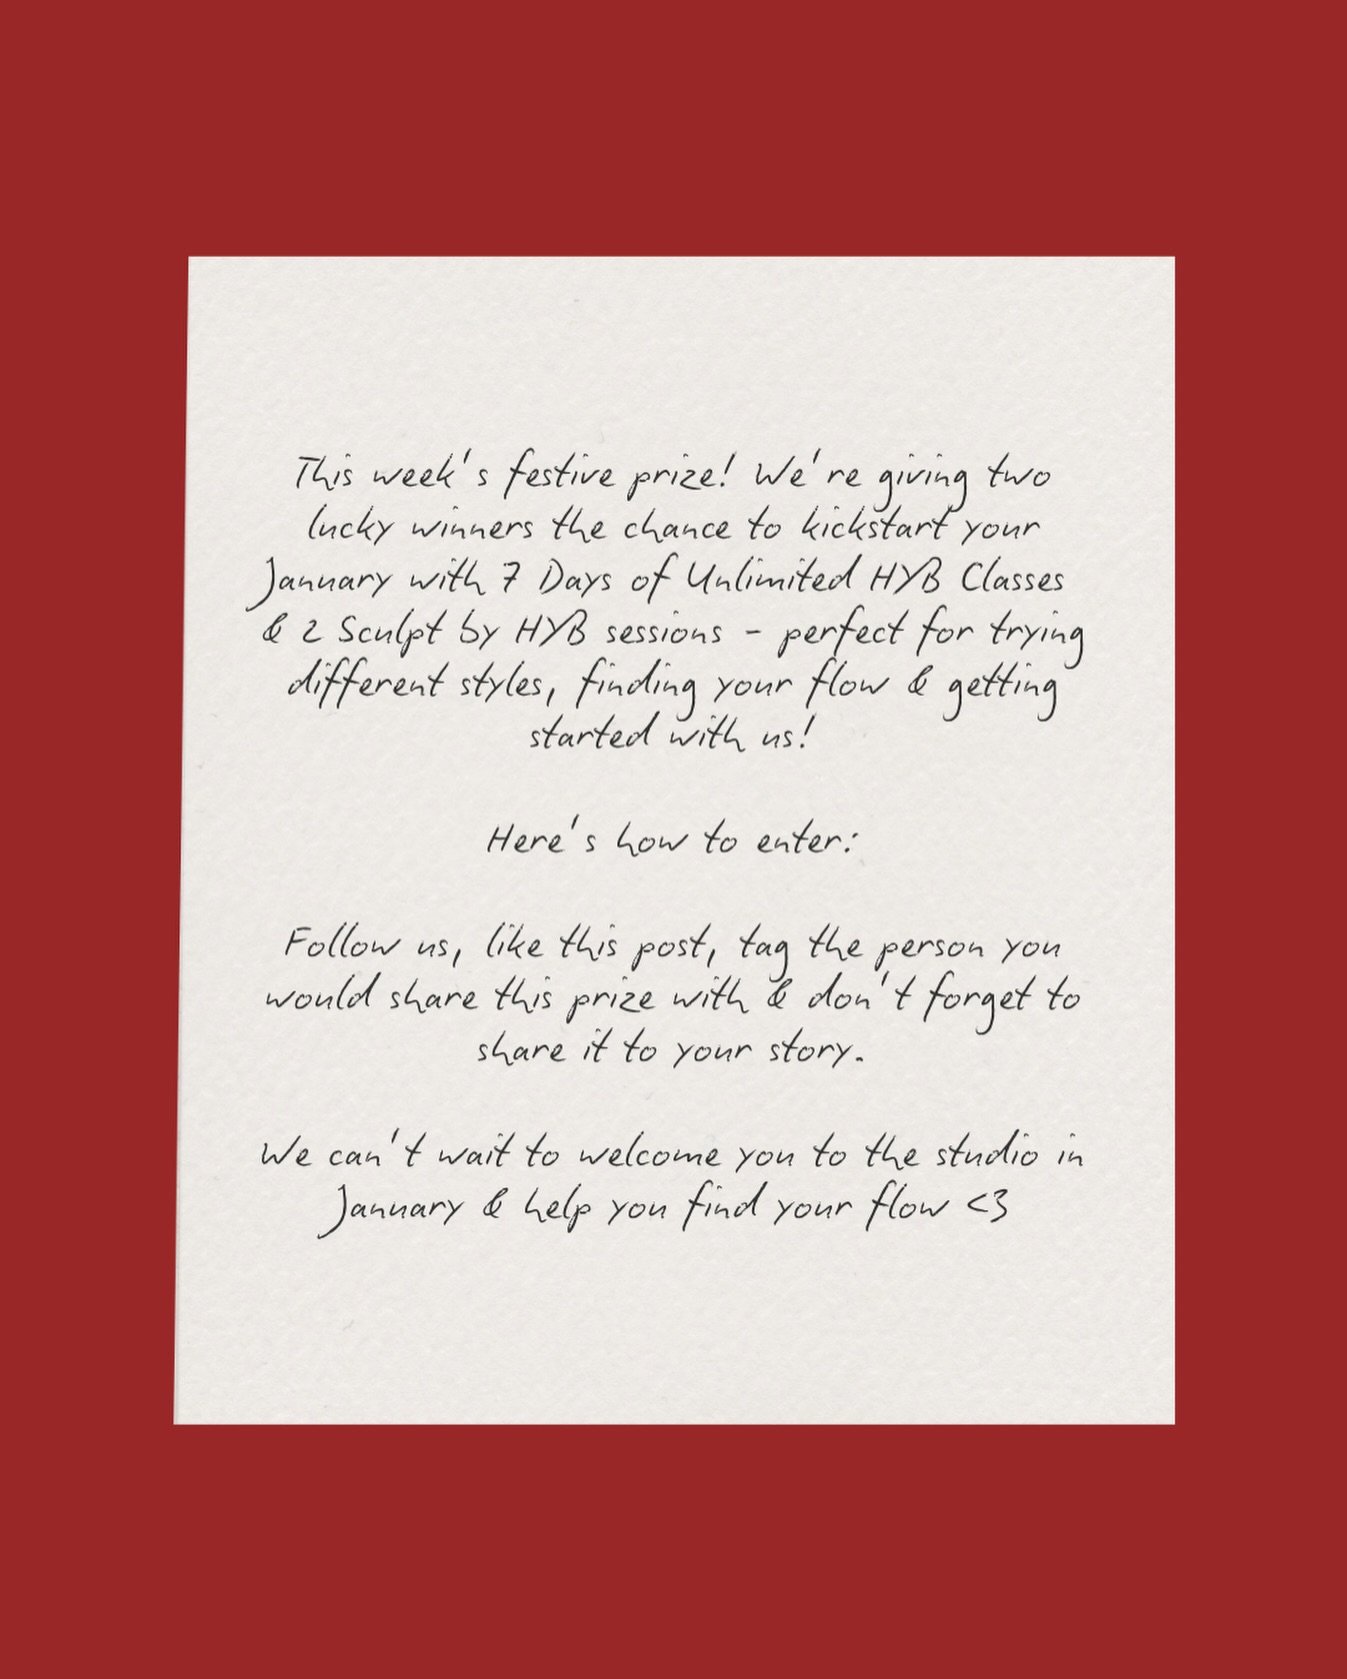 This week's festive prize! We're giving two
lucky winners the chance to kickstart your
January with 7 Days of Unlimited HYB Classes
& 2 Sculpt by HYB sessions - perfect for trying
different styles, finding your flow & getting
started with us!
Here's how to enter:
Follow us, like this post, tag the person you
would share this prize with & don't forget to
share it to your story.
We can't wait to welcome you to the studio in
January & help you find your flow <3